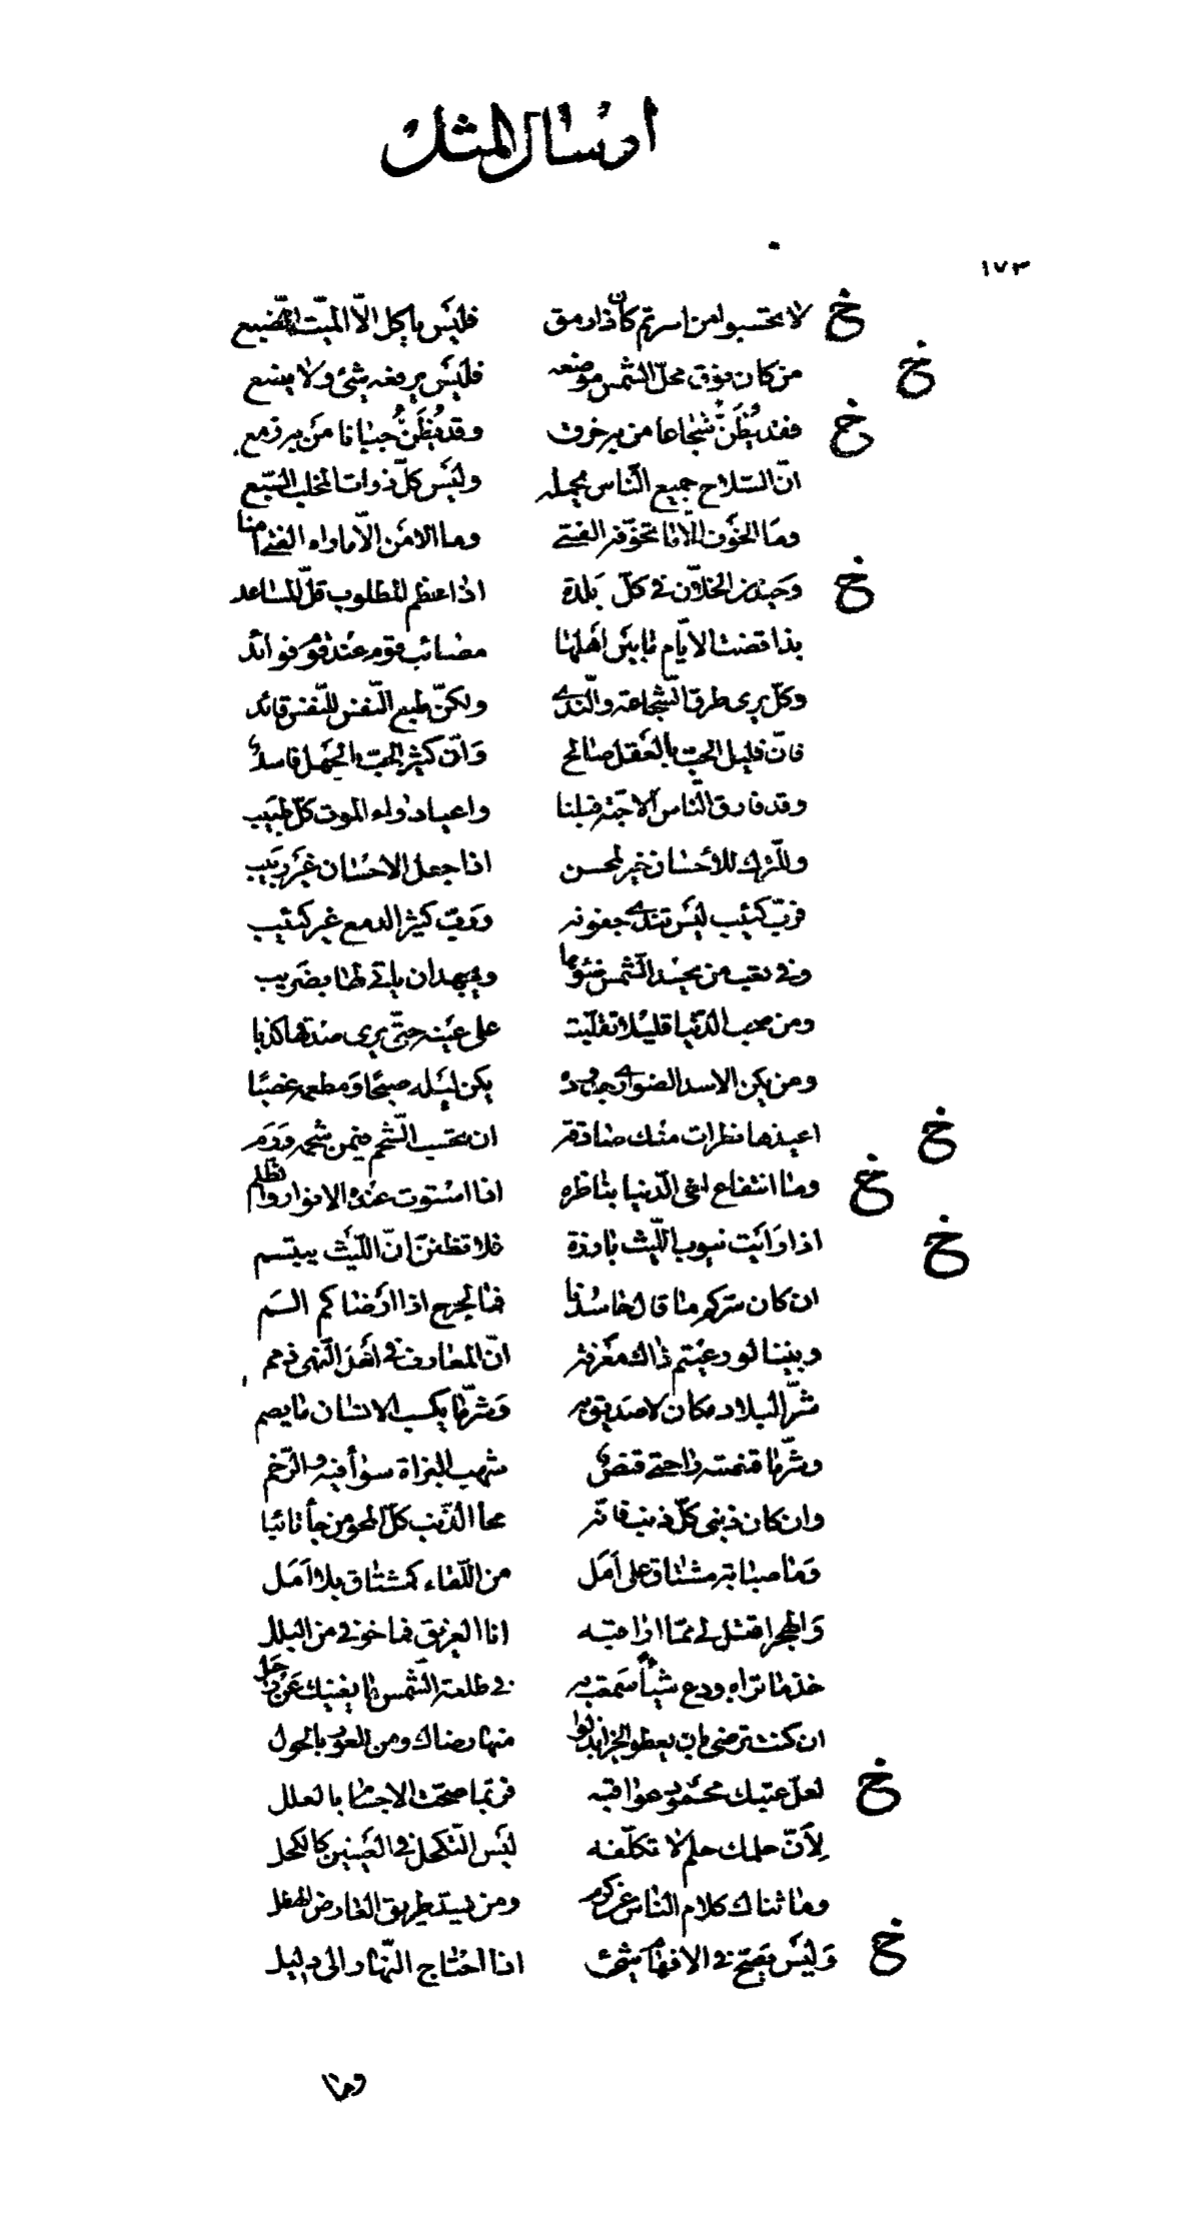 ارسال المثل
١٧٣
خ لا تحسبوا من اسرتم كان ذا رمق فليس ياكل الّا الميّت الضّبع
خ من كان فوق محلّ الشمس موضعه فليس يرفعه شئ ولا يضع
خ فقد يُظَنّ شجاعا من به خرق وقد يُظَنّ جبانا من به زمع
انّ السّلاح جميع النّاس يحمله وليس كلّ ذوات المخلب السّبع
وما الخوف الّا ما تخوّفه الفتى وما الامن الّا ما راه الفتى امنا
خ وحيد من الخلّان في كلّ بلدة اذا عظم المطلوب قلّ المساعد
بذا قضت الايّام ما بين اهلها مصائب قوم عند قوم فوائد
وكلّ يرى طرق الشّجاعة والنّدى ولكنّ طبع النّفس للنّفس قائد
فانّ قليل الحب بالعقل صالح وانّ كثير الحبّ بالجهل فاسد
وقد فارق النّاس الاحبّة قبلنا واعيا دواء الموت كلّ طبيب
وللترك للأحسان خير لمحسن اذا جعل الاحسان غير ربيب
فربّ كئيب ليس تندى جفونه وربّ كثير الدمع غير كئيب
وفي تعب من يحسد الشّمس ضوءها ويجهد ان ياتي لها بضريب
ومن صحب الدّنيا قليلا تقلّبت على عينه حتّى يرى صدقها كذبا
ومن يكن الاسد الضوارى جدوده يكن ليله صبحا ومطعمه غصبا
خ اعيذها نظرات منك صادقة ان تحسب الشّحم فيمن شحمه ورم
خ وما انتفاع اخى الدّنيا بناظره اذا استوت عنده الانوار والظّلم
خ اذا رأيت نيوب اللّيث بارزة فلا تظننّ انّ اللّيث يبتسم
ان كان سركم ما قال حاسدنا فما لجرح اذا ارضاكم الم
وبيننا لو رعيتم ذاك معرفة انّ المعارف في اهل النّهى ذمم
شرّ البلاد مكان لا صديق به وشرّ ما يكسب الانسان ما يصم
وشرّ ما قنصته راحتى قنص شهب البزاة سواء فيه والرّخم
وان كان ذنبى كلّ ذنب فانّه محا الذّنب كلّ المحو من جاء تائبا
وما صبابة مشتاق على امل من اللّقاء كمشتاق بلا امل
والهجر اقتل لى ممّا اراقبه انا الغريق فما خوفى من البلل
خذ ما تراه ودع شيئا سمعت به في طلعة الشّمس ما يغنيك عن زحل
ان كنت ترضى بان يعطوا الجزا بذلوا منها رضاك ومن للعور بالحول
خ لعلّ عتبك محمود عواقبه فربّما صحّت الاجسام بالعلل
لأنّ حلمك حلم لا تكلّفه ليس التّكحل في العينين كالكحل
وما ثناك كلام النّاس عن كرم ومن يسدّ طريق العارض الهطل
خ وليس يصحّ في الافهام شئ اذا احتاج النّهار الى دليل
وما